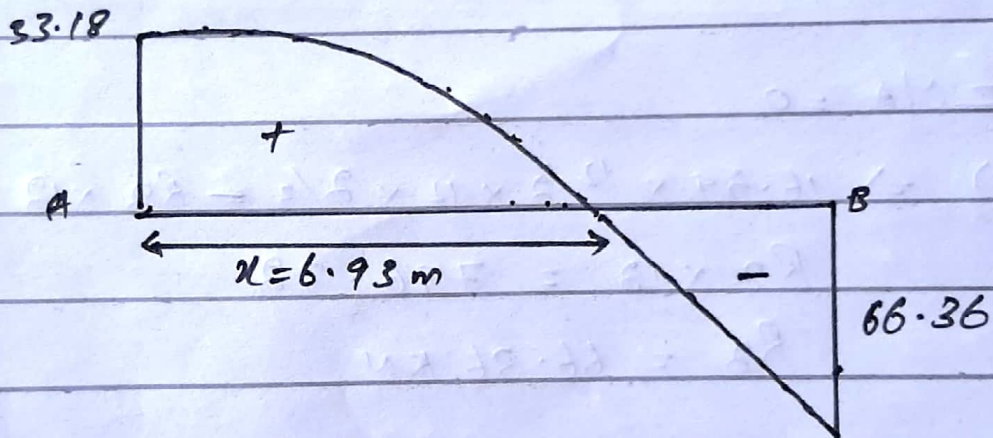 33.18
+
A B
x=6.93 m
-
66.36